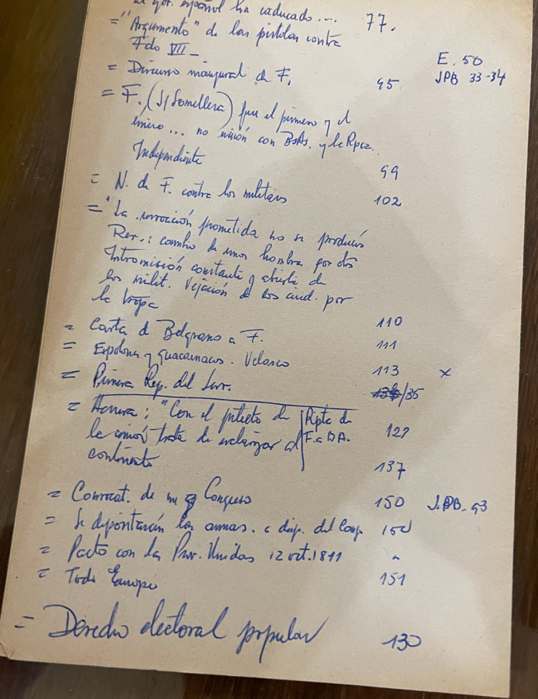 español ha caducado... 77.
= "Argumento" de las pistolas contra
Fdo VII — E. 50
= Discurso inaugural de F. 95 JPB 33-34
= F. (S/Somellera) fue el primero y el
único... no unión con BsAs. y la Rpca.
Independiente 99
= N. de F. contra los militares 102
= "La prometida no se produjo
Rev.: cambio de unos hombres por otros
Intromisión constante y abierta de
los milit. Vejación de los ciud. por
la tropa 110
= Carta de Belgrano a F. 111
= Espdona y guacamacos. Velasco 113 x
= Primera Rep. del Sur. /35
= Herrera: "Con el pretexto de Rpta de 127
la unión trata de esclavizar al F. a BA.
continente 137
= Convocat. de un Congreso 150 J.PB. 93
= Se depositarán las armas. a disp. del Cong 150
= Pacto con las Prov. Unidas 12 oct. 1811 "
= Todo Europa 151
= Derecho electoral popular 130